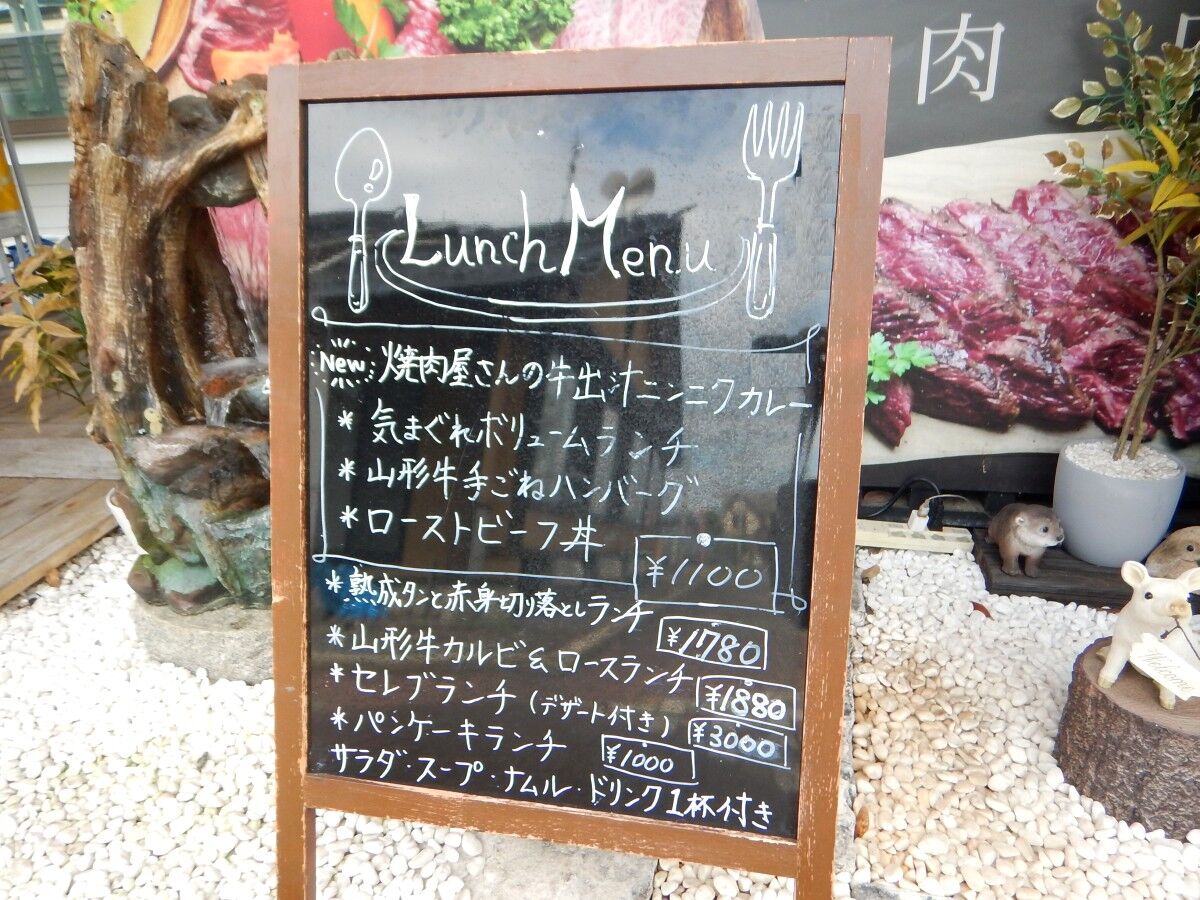 肉
Lunch Menu
New 焼肉屋さんの牛出汁ニンニクカレー
* 気まぐれボリュームランチ
* 山形牛手ごねハンバーグ
* ローストビーフ丼
¥1100
* 熟成タンと赤身切り落としランチ
¥1780
* 山形牛カルビ&ロースランチ
¥1880
* セレブランチ (デザート付き)
¥3000
* パンケーキランチ
¥1000
サラダ・スープ・ナムル・ドリンク1杯付き
Welcome